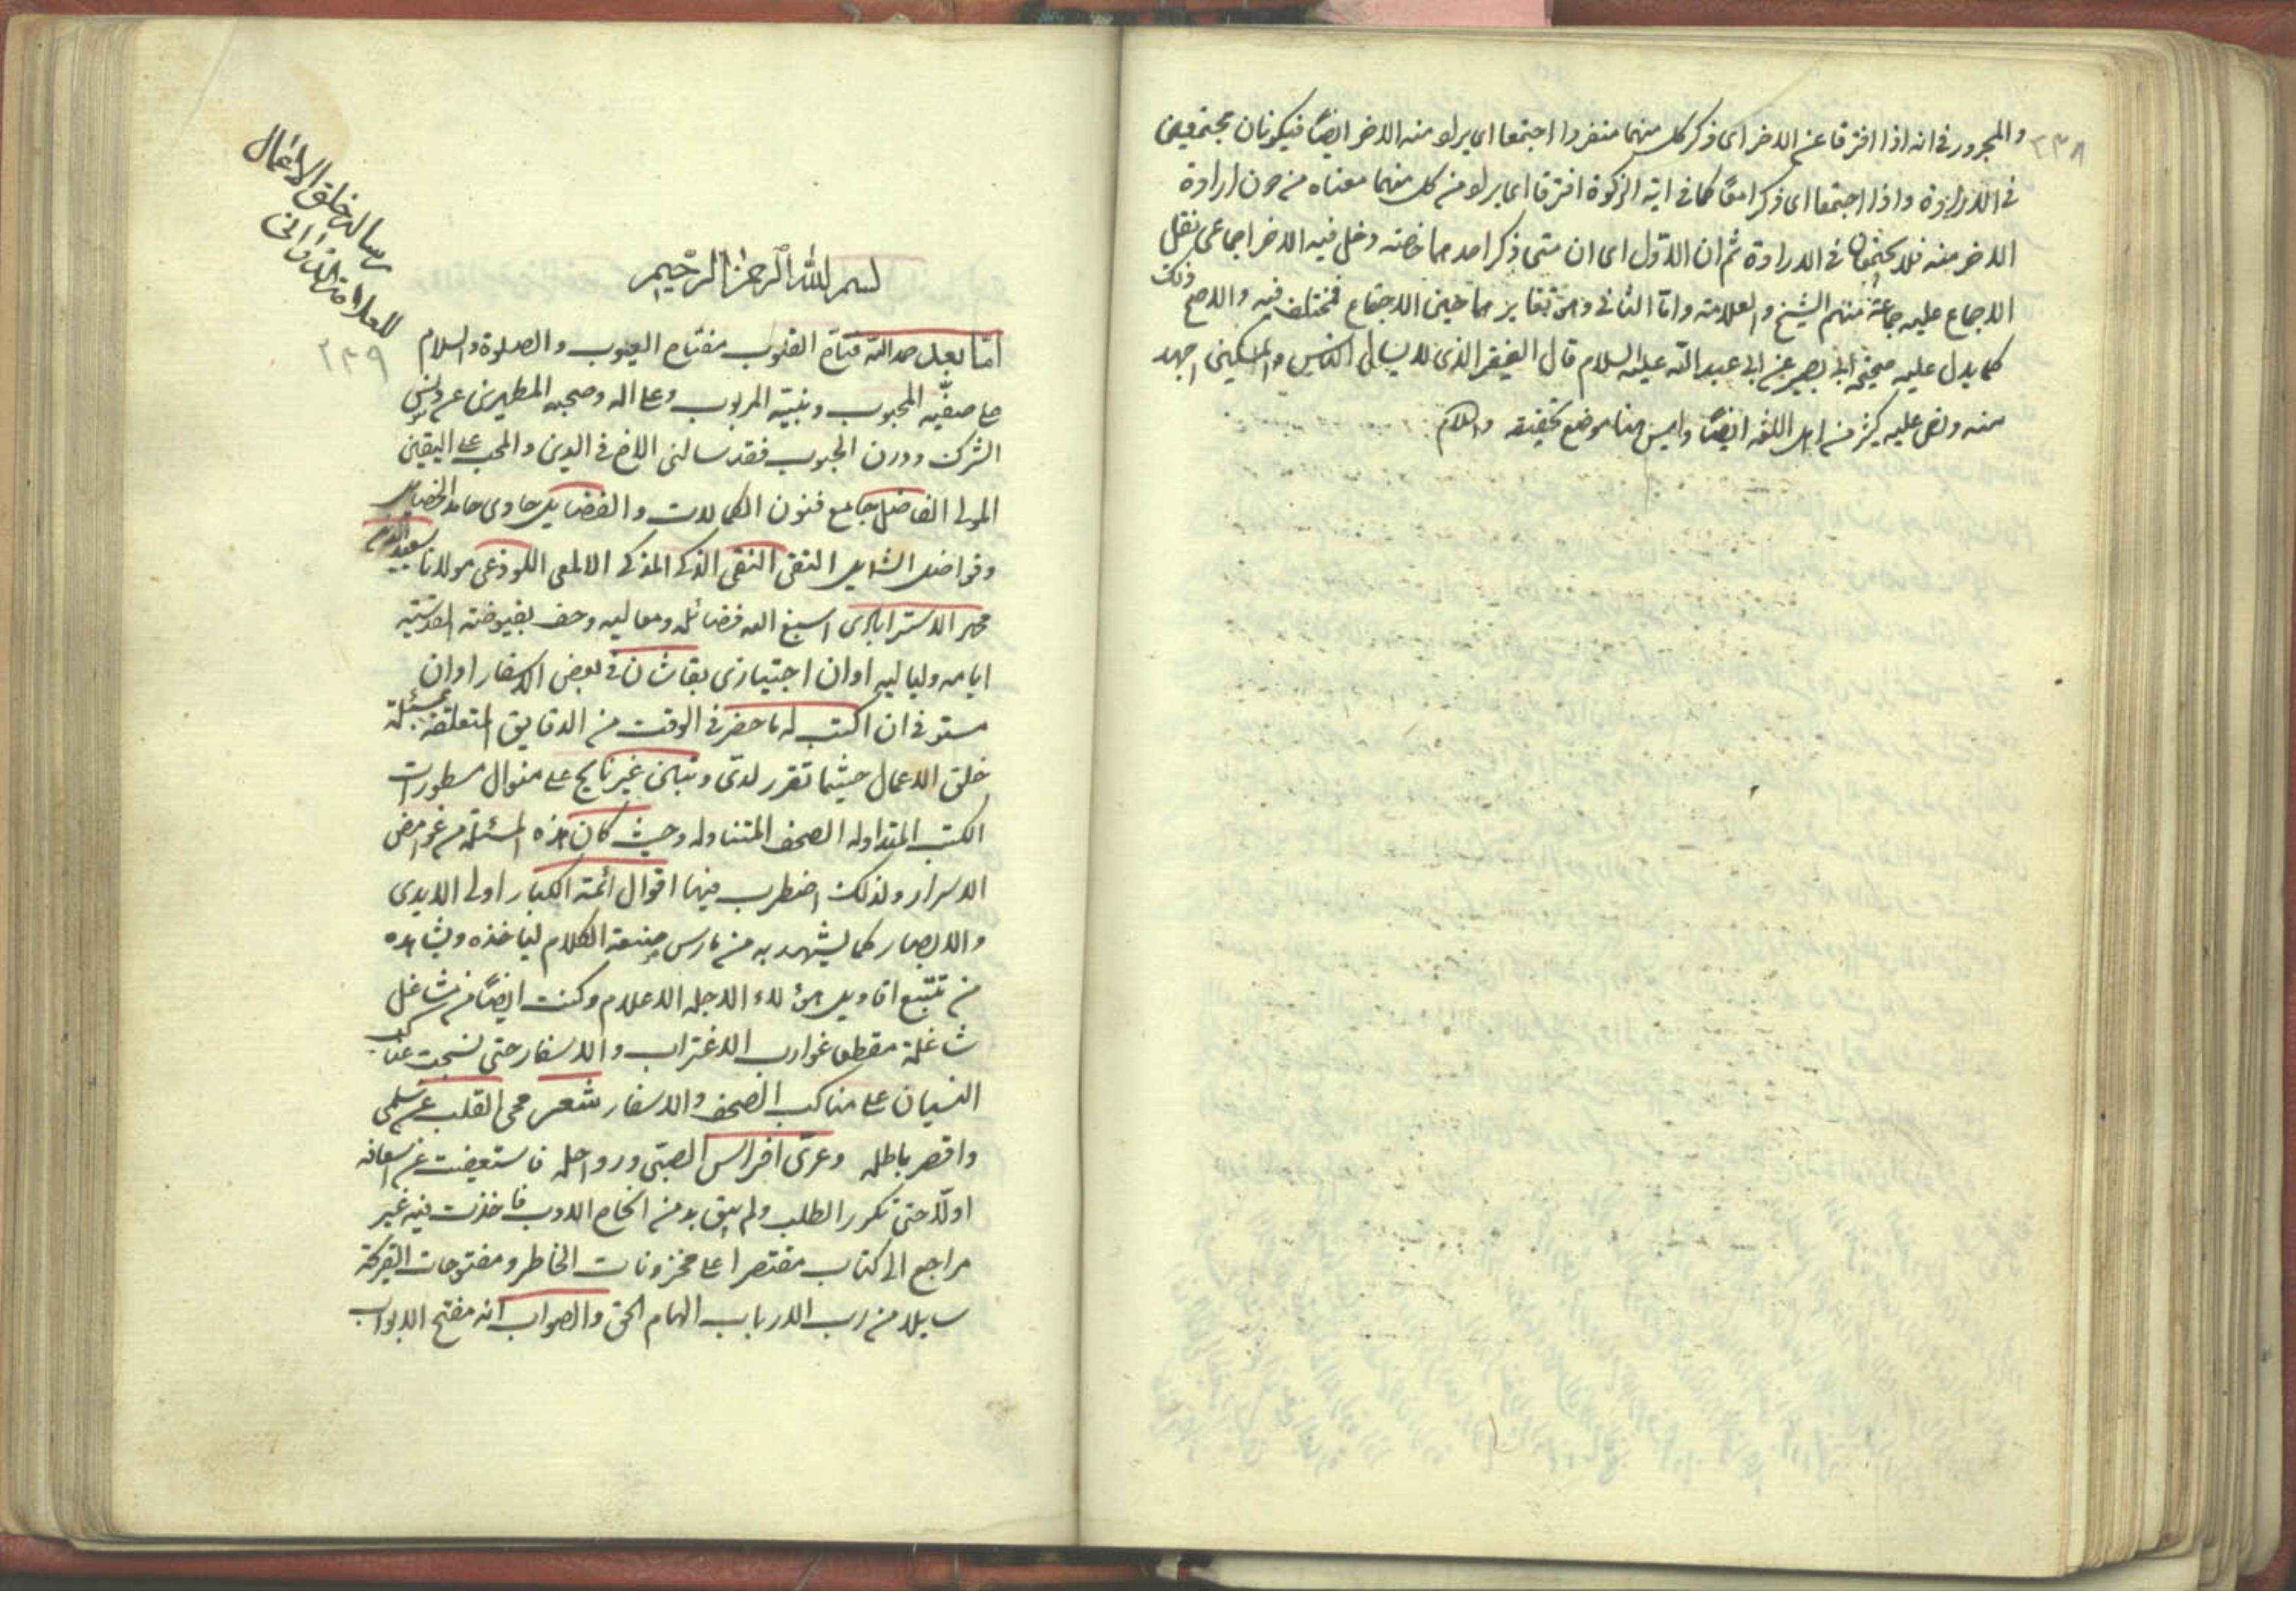 ٢٣٨
والمجرور فى انه اذا افترقا عن الاخر اى ذكر كل منهما منفردا اجتمعا اى يراد منه الاخر ايضًا فيكونان مجتمعين
فى الارادة واذا اجتمعا اى ذكرا معًا كما فى اية الزكوة افترقا اى يراد من كل منهما معناه من دون ارادة
الاخر منه فلا يجتمعان فى الارادة ثم ان الاوّل اى ان متى ذكر احدهما خاصة دخل فيه الاخر اجماعى نقل
الاجماع عليه جماعة منهم الشيخ والعلامة وامّا الثانى وهو تغايرهما حين الاجتماع فمختلف فيه والاصح ذلك
كما يدل عليه صحيحة ابى بصير عن ابى عبد الله عليه السلام قال الفقير الذى لا يسأل الناس والمسكين اجهد
منه ونص عليه كثير من اهل اللغه ايضًا وليس هنا موضع تحقيقه والسلام
رساله خلق الاعمال
للعلامة الدوانى
٢٣٩
بسم الله الرحمن الرحيم
امّا بعد حمد الله فتاح القلوب مفتاح الغيوب والصلوة والسلام
على صفيّه المحبوب ونبيّه المربوب وعلى اله وصحبه المطهرين عن دنس
الشرك ودرن الحبوب فقد سالنى الاخ فى الدين والمحب على اليقين
المولى الفاضل جامع فنون الكمالات والفضايل حاوى محامد الخصايل
وفواضل الشمايل التقى النقى الذكى المذكى الالمعى اللوذعى مولانا سعيد الدين
محمد الاسترابادى اسبغ الله فضائله ومعاليه وحف بفيوضته القدسيّه
ايامه ولياليه اوان اجتيازى بقاشان فى بعض الاسفار اوان
مستوفز ان اكتب له ما حضر فى الوقت من الدقايق المتعلقة بمسئلة
خلق الاعمال حيثما تقرر لدىّ وتبانى غير ناهج على منوال مسطورات
الكتب المتداوله الصحف المتناوله وحيث كان هذه المسئلة من غوامض
الاسرار ولذلك اضطرب فيها اقوال ائمة الكبار اولى الايدى
والابصار كما يشهد به من مارس صنعة الكلام ليا خذه ويشاهده
من تتبّع اقاويل هؤلاء الاجله الاعلام وكنت ايضًا فى مشاغل
شاغلة مقطعا غوارب الاغتراب والاسفار حتى نسجت عناكب
النسيان على مناكب الصحف والاسفار شعر صحى القلب عن سلمى
واقصر باطله وعرّى افراس الصبى ورواحله فاستعفيت عن اسعافه
اولًا حتى تكرر الطلب ولم يبق بد من انجاح الاوب فاخذت فيه غير
مراجع الى كتاب مقتصرا على مخزونات الخاطر ومفتوحات القريحة
سايلا من رب الارباب الهام الحق والصواب انه مفتح الابواب